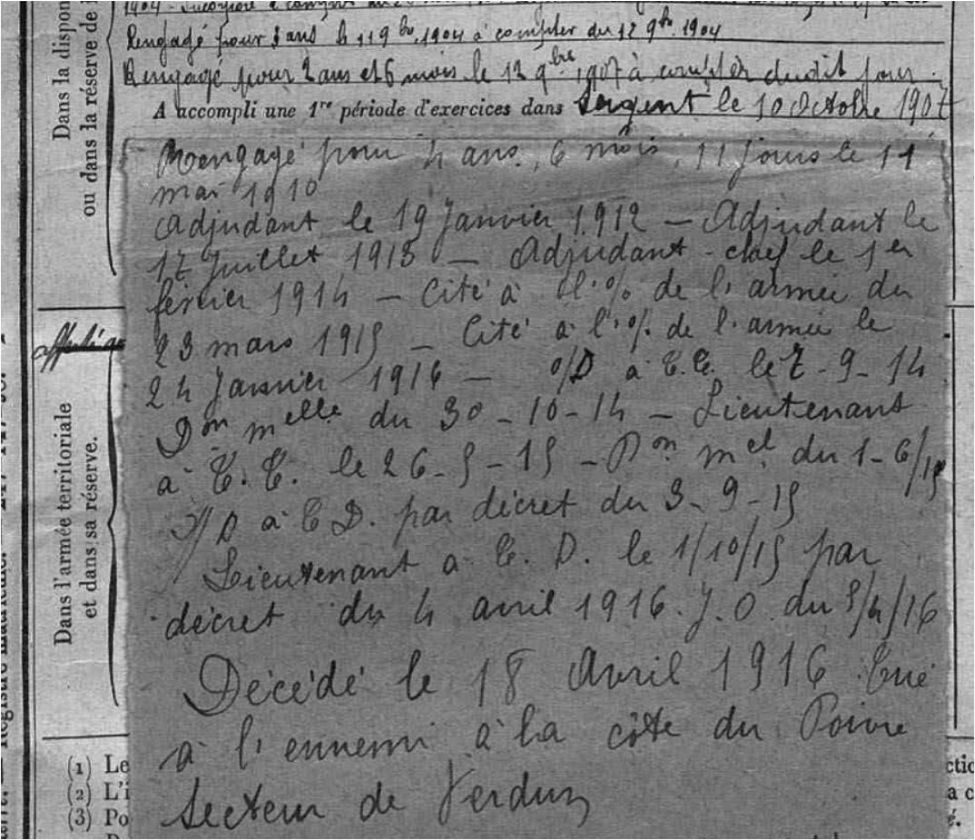 Dans la dispon
ou dans la réserve de l
Rengagé pour 3 ans le 9bre 1904 à compter du 12 9bre 1904
Rengagé pour 2 ans et 6 mois le 12 9bre 1907 à compter dudit jour.
A accompli une 1re période d'exercices dans Sergent le 10 Octobre 1907
Rengagé pour 4 ans, 6 mois, 11 jours le 11
mai 1910
Adjudant le 19 Janvier 1912 — Adjudant le
17 Juillet 1913 — Adjudant-chef le 1er
février 1914 — Cité à l'o/o de l'armée du
23 mars 1915 — Cité à l'o/. de l'armée le
24 Janvier 1916 — s/D à T.T. le 7-9-14
Don melle du 30-10-14 — Lieutenant
à T.T. le 26-5-15 — Don mel du 1-6/15
s/D à T D. par décret du 3-9-15
Lieutenant à T. D. le 1/10/15 par
décret du 4 avril 1916. J.O du 5/4/16
Décédé le 18 Avril 1916 tué
à l'ennemi à la côte du Poivre
secteur de Verdun
Dans l'armée territoriale
et dans sa réserve.
(1) Le
(2) L'i
(3) Po